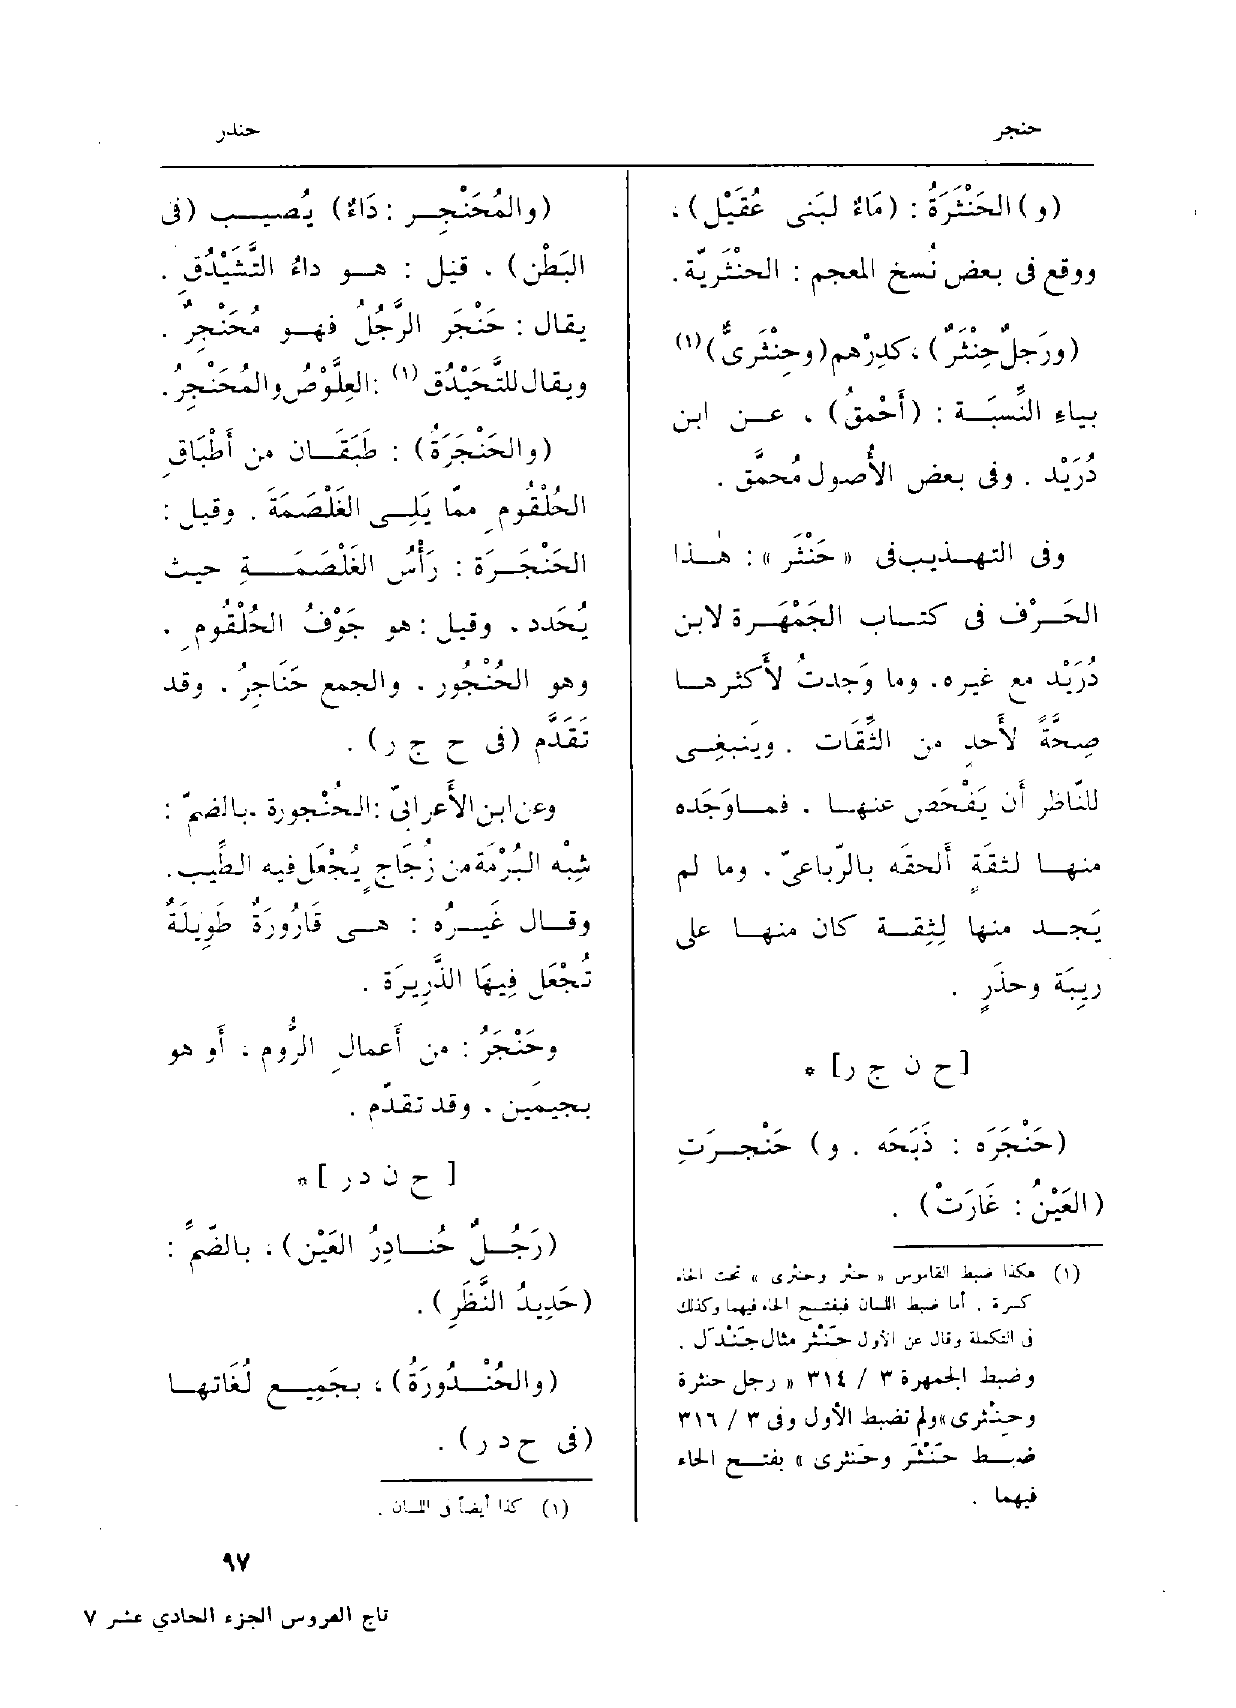 حنجر
حندر
(و) الحَنْثَرَةُ : (مَاءٌ لبَنى عُقَيْل) ،
ووقع فى بعض نُسخ المعجم : الحنْثَريّة .
(ورَجلٌ حِنْثَرٌ) ، كدِرْهم (وحِنْثَرىٌّ) (١)
بياءِ النِّسبَة : (أَحْمقُ) ، عن ابن
دُرَيْد . وفى بعض الأُصول مُحمَّق .
وفى التهذيب فى « حَنْثَر » : هٰذا
الحَرْف فى كتاب الجَمْهَرة لابن
دُرَيْد مع غيره . وما وَجدتُ لأَكثرها
صِحَّةً لأَحدٍ من الثِّقَات . ويَنبغِى
للنّاظر أَن يَفْحَص عنها . فما وَجَده
منها لثقَةٍ أَلحقَه بالرّباعىّ . وما لم
يَجد منها لِثِقة كان منها على
رِيبَة وحذَرٍ .
[ح ن ج ر] *
(حَنْجَرَه : ذَبَحَه . و) حَنْجرَتِ
(العَيْنُ : غَارَتْ) .
(١) هكذا ضبط القاموس « حنثر وحنثرى » تحت الحاء
كسرة . أما ضبط اللسان فبفتح الحاء فيهما وكذلك
فى التكملة وقال عن الأول حَنْثَر مثال جَنْدَل .
وضبط الجمهرة ٣ / ٣١٤ « رجل حنثرة
وحِنْثرى » ولم تضبط الأول وفى ٣ / ٣١٦
ضبط حَنْثَر وحَنثرى » بفتح الحاء
فيهما .
(والمُحَنْجِر : دَاءٌ) يُصيب (فى
البَطْن) ، قيل : هو داءُ التَّشَيْدُقِ .
يقال : حَنْجَرَ الرَّجُلُ فهو مُحَنْجِرٌ .
ويقال للتَّحَيْدُق (١) : العِلَّوْصُ والمُحَنْجِرُ .
(والحَنْجَرَةُ) : طَبَقَان من أَطْبَاقِ
الحُلْقُومِ ممّا يَلِى الغَلْصَمَةَ . وقيل :
الحَنْجَرَة : رَأْسُ الغَلْصَمَةِ حيث
يُحَدد . وقيل : هو جَوْفُ الحُلْقُومِ .
وهو الحُنْجُور . والجمع حَنَاجِرُ . وقد
تَقَدَّم (فى ح ج ر) .
وعن ابن الأَعرابىّ : الحُنْجورة . بالضمّ :
شِبْه البُرْمَة من زُجَاجٍ يُجْعَل فيه الطِّيب .
وقال غَيرُه : هى قَارُورَةٌ طَوِيلَةٌ
تُجْعَل فِيهَا الذَّرِيرَة .
وحَنْجَرُ : من أَعمالِ الرُّوم ، أَو هو
بجيمَين . وقد تقدّم .
[ ح ن د ر ] *
(رَجُلٌ حُنادِرُ العَيْن) ، بالضّمِّ :
(حَدِيدُ النَّظَرِ) .
(والحُنْدُورَةُ) ، بجَمِيع لُغَاتها
(فى ح د ر) .
(١) كذا أيضاً فى اللسان .
٩٧
تاج العروس الجزء الحادي عشر ٧